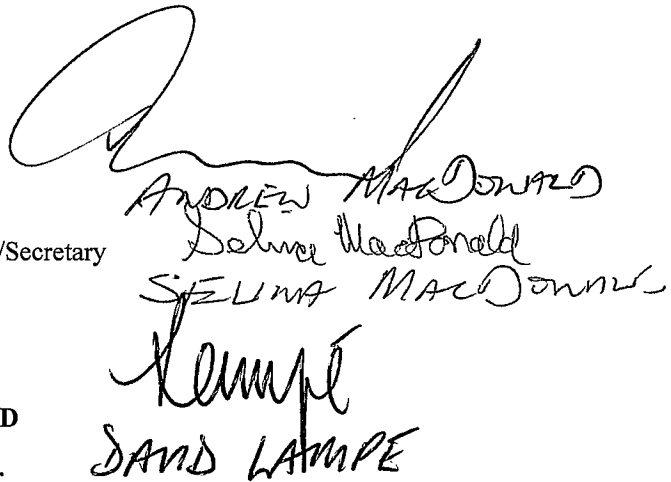 ANDREW MACDONALD
/Secretary Selina MacDonald
SELINA MACDONALD
Lampé
D
DAVID LAMPE
.